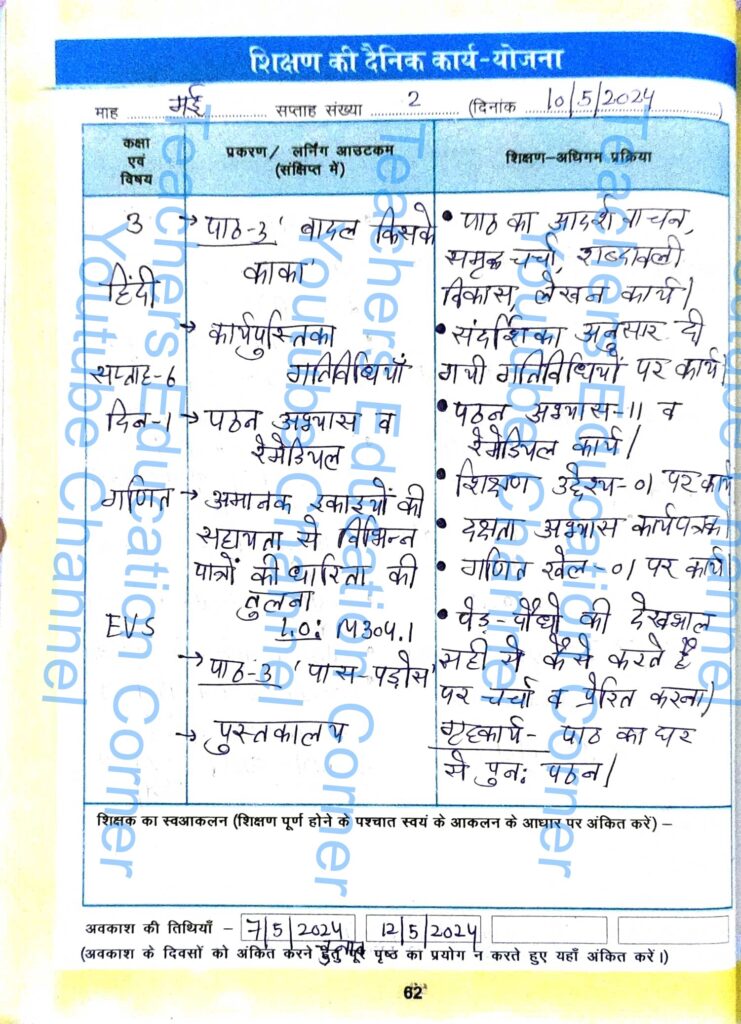 शिक्षण की दैनिक कार्य-योजना
माह मई सप्ताह संख्या 2 (दिनांक 10/5/2024)
कक्षा एवं विषय
प्रकरण/ लर्निंग आउटकम
(संक्षिप्त में)
शिक्षण-अधिगम प्रक्रिया
3
हिंदी
सप्ताह-6
दिन-1
गणित
EVS
→ पाठ-3 'बादल किसके
काका'
→ कार्यपुस्तिका
गतिविधियाँ
→ पठन अभ्यास व
रेमेडियल
→ अमानक इकाइयों की
सहायता से विभिन्न
पात्रों की धारिता की
तुलना
LO: M304.1
→ पाठ-3 'पास-पड़ोस'
→ पुस्तकालय
• पाठ का आदर्श वाचन,
समूह चर्चा, शब्दावली
विकास, लेखन कार्य।
• संदर्शिका अनुसार दी
गयी गतिविधियों पर कार्य।
• पठन अभ्यास-11 व
रेमेडियल कार्य।
• शिक्षण उद्देश्य-01 पर कार्य
• दक्षता अभ्यास कार्यपत्रक।
• गणित खेल-01 पर कार्य।
• पेड़-पौधों की देखभाल
सही से कैसे करते हैं
पर चर्चा व प्रेरित करना।
गृहकार्य- पाठ का घर
से पुनः पठन।
शिक्षक का स्वआकलन (शिक्षण पूर्ण होने के पश्चात स्वयं के आकलन के आधार पर अंकित करें) –
अवकाश की तिथियाँ – 7/5/2024 12/5/2024
चुनाव
(अवकाश के दिवसों को अंकित करने हेतु पूर पृष्ठ का प्रयोग न करते हुए यहाँ अंकित करें।)
62
Teachers Education Corner
Youtube Channel
Teachers Education Corner
Youtube Channel
Teachers Education Corner
Youtube Channel